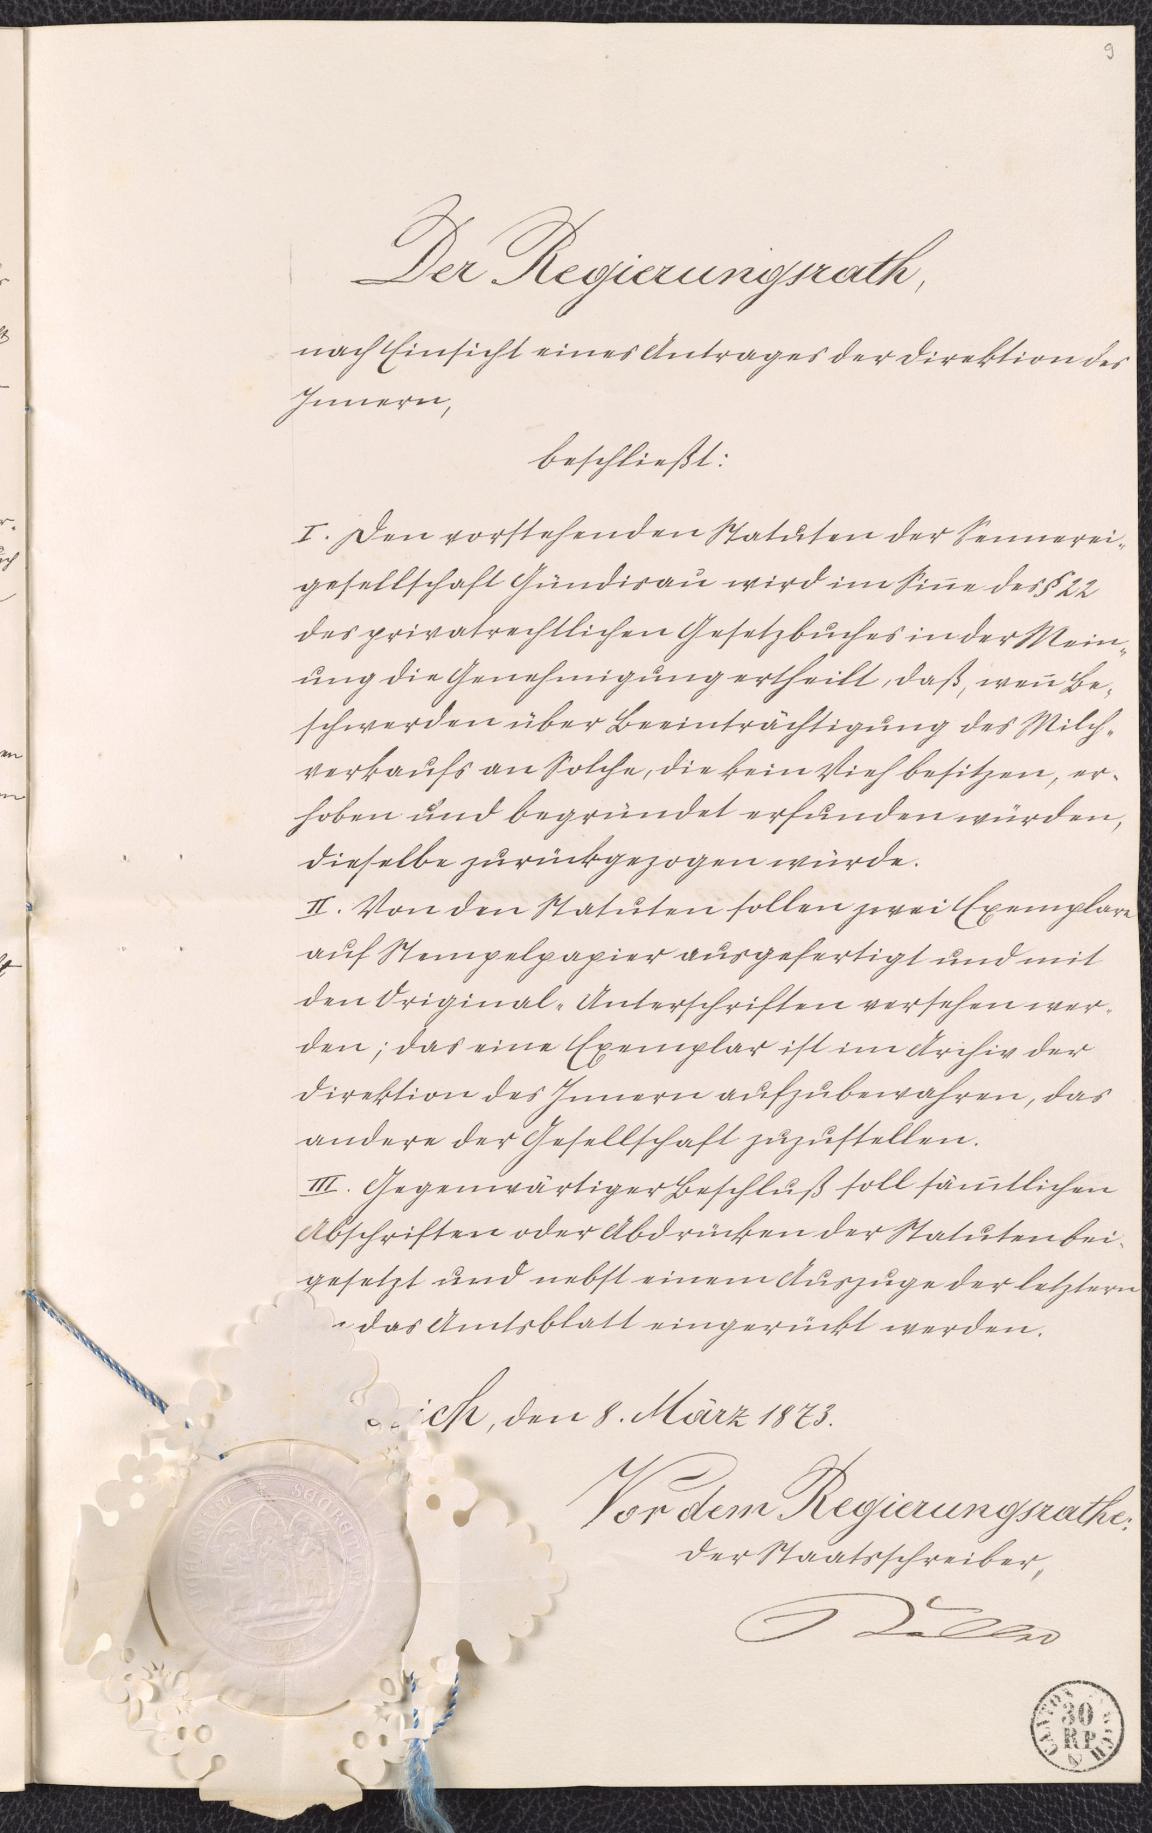 9
Der Regierungsrath,
nach Einsicht eines Antrages der Direktion des
Innern,
beschließt:
I. Den vorstehenden Statuten der Sennerei-
gesellschaft Gündisau wird im Sinne des § 22
des privatrechtlichen Gesetzbuches in der Mein-
ung die Genehmigung ertheilt, daß, wenn Be-
schwerden über Beeinträchtigung des Milch-
verkaufs an Solche, die kein Vieh besitzen, er-
hoben und begründet erfunden würden,
dieselbe zurückgezogen würde.
II. Von den Statuten sollen zwei Exemplare
auf Stempelpapier ausgefertigt und mit
den Original-Unterschriften versehen wer-
den; das eine Exemplar ist im Archiv der
Direktion des Innern aufzubewahren, das
andere der Gesellschaft zuzustellen.
III. Gegenwärtiger Beschluß soll sämmtlichen
Abschriften oder Abdrücken der Statuten bei-
gesetzt und nebst einem Auszuge der letztern
das Amtsblatt eingerückt werden.
ich, den 8. März 1873.
Vor dem Regierungsrathe:
Der Staatsschreiber,
Keller
CANTON ZÜRICH
30
RP.